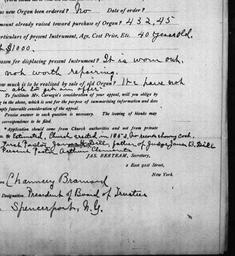 new Organ been ordered? No Date of order?
mount already raised toward purchase of Organ? 432.45
articulars of present Instrument, Age, Cost Price, Etc. 40 years old,
$1000.
eason for displacing present Instrument? It is worn out,
not worth repairing.
much is to be realized by sale of Organ? It have not
able to get an offer
To facilitate Mr. Carnegie's consideration of your appeal, will you oblige by
in the above, which is sent for the purpose of summarizing information and does
imply favorable consideration of the appeal.
Precise answer to each question is necessary. The issuing of blanks may
correspondence to be
Application should come from Church authorities and not from private
Estimated, Church erected in 1852,
First Pastor James father of Judge James
Present Pastor
JAS. BERTRAM, Secretary,
2 East 91st Street,
New York.
Chauncey Brainard
Designation, President of Board of Trustees
Spencerport, N.Y.